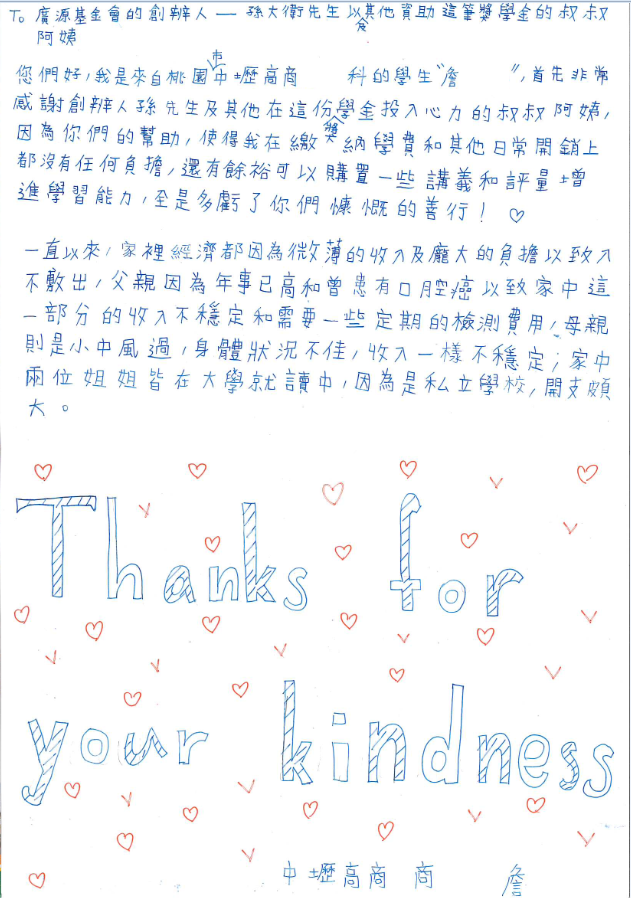 To 廣源基金會的創辦人 — 孫大衛先生 以及其他資助這筆獎學金的叔叔
阿姨
您們好,我是來自桃園市中壢高商 科的學生"詹 ",首先非常
感謝創辦人孫先生及其他在這份獎學金投入心力的叔叔阿姨,
因為你們的幫助,使得我在繳納學費和其他日常開銷上
都沒有任何負擔,還有餘裕可以購置一些講義和評量增
進學習能力,全是多虧了你們慷慨的善行! ♡
一直以來,家裡經濟都因為微薄的收入及龐大的負擔以致入
不敷出,父親因為年事已高和曾患有口腔癌以致家中這
一部分的收入不穩定和需要一些定期的檢測費用,母親
則是小中風過,身體狀況不佳,收入一樣不穩定;家中
兩位姐姐皆在大學就讀中,因為是私立學校,開支頗
大。
Thanks for
your kindness
中壢高商 商 詹